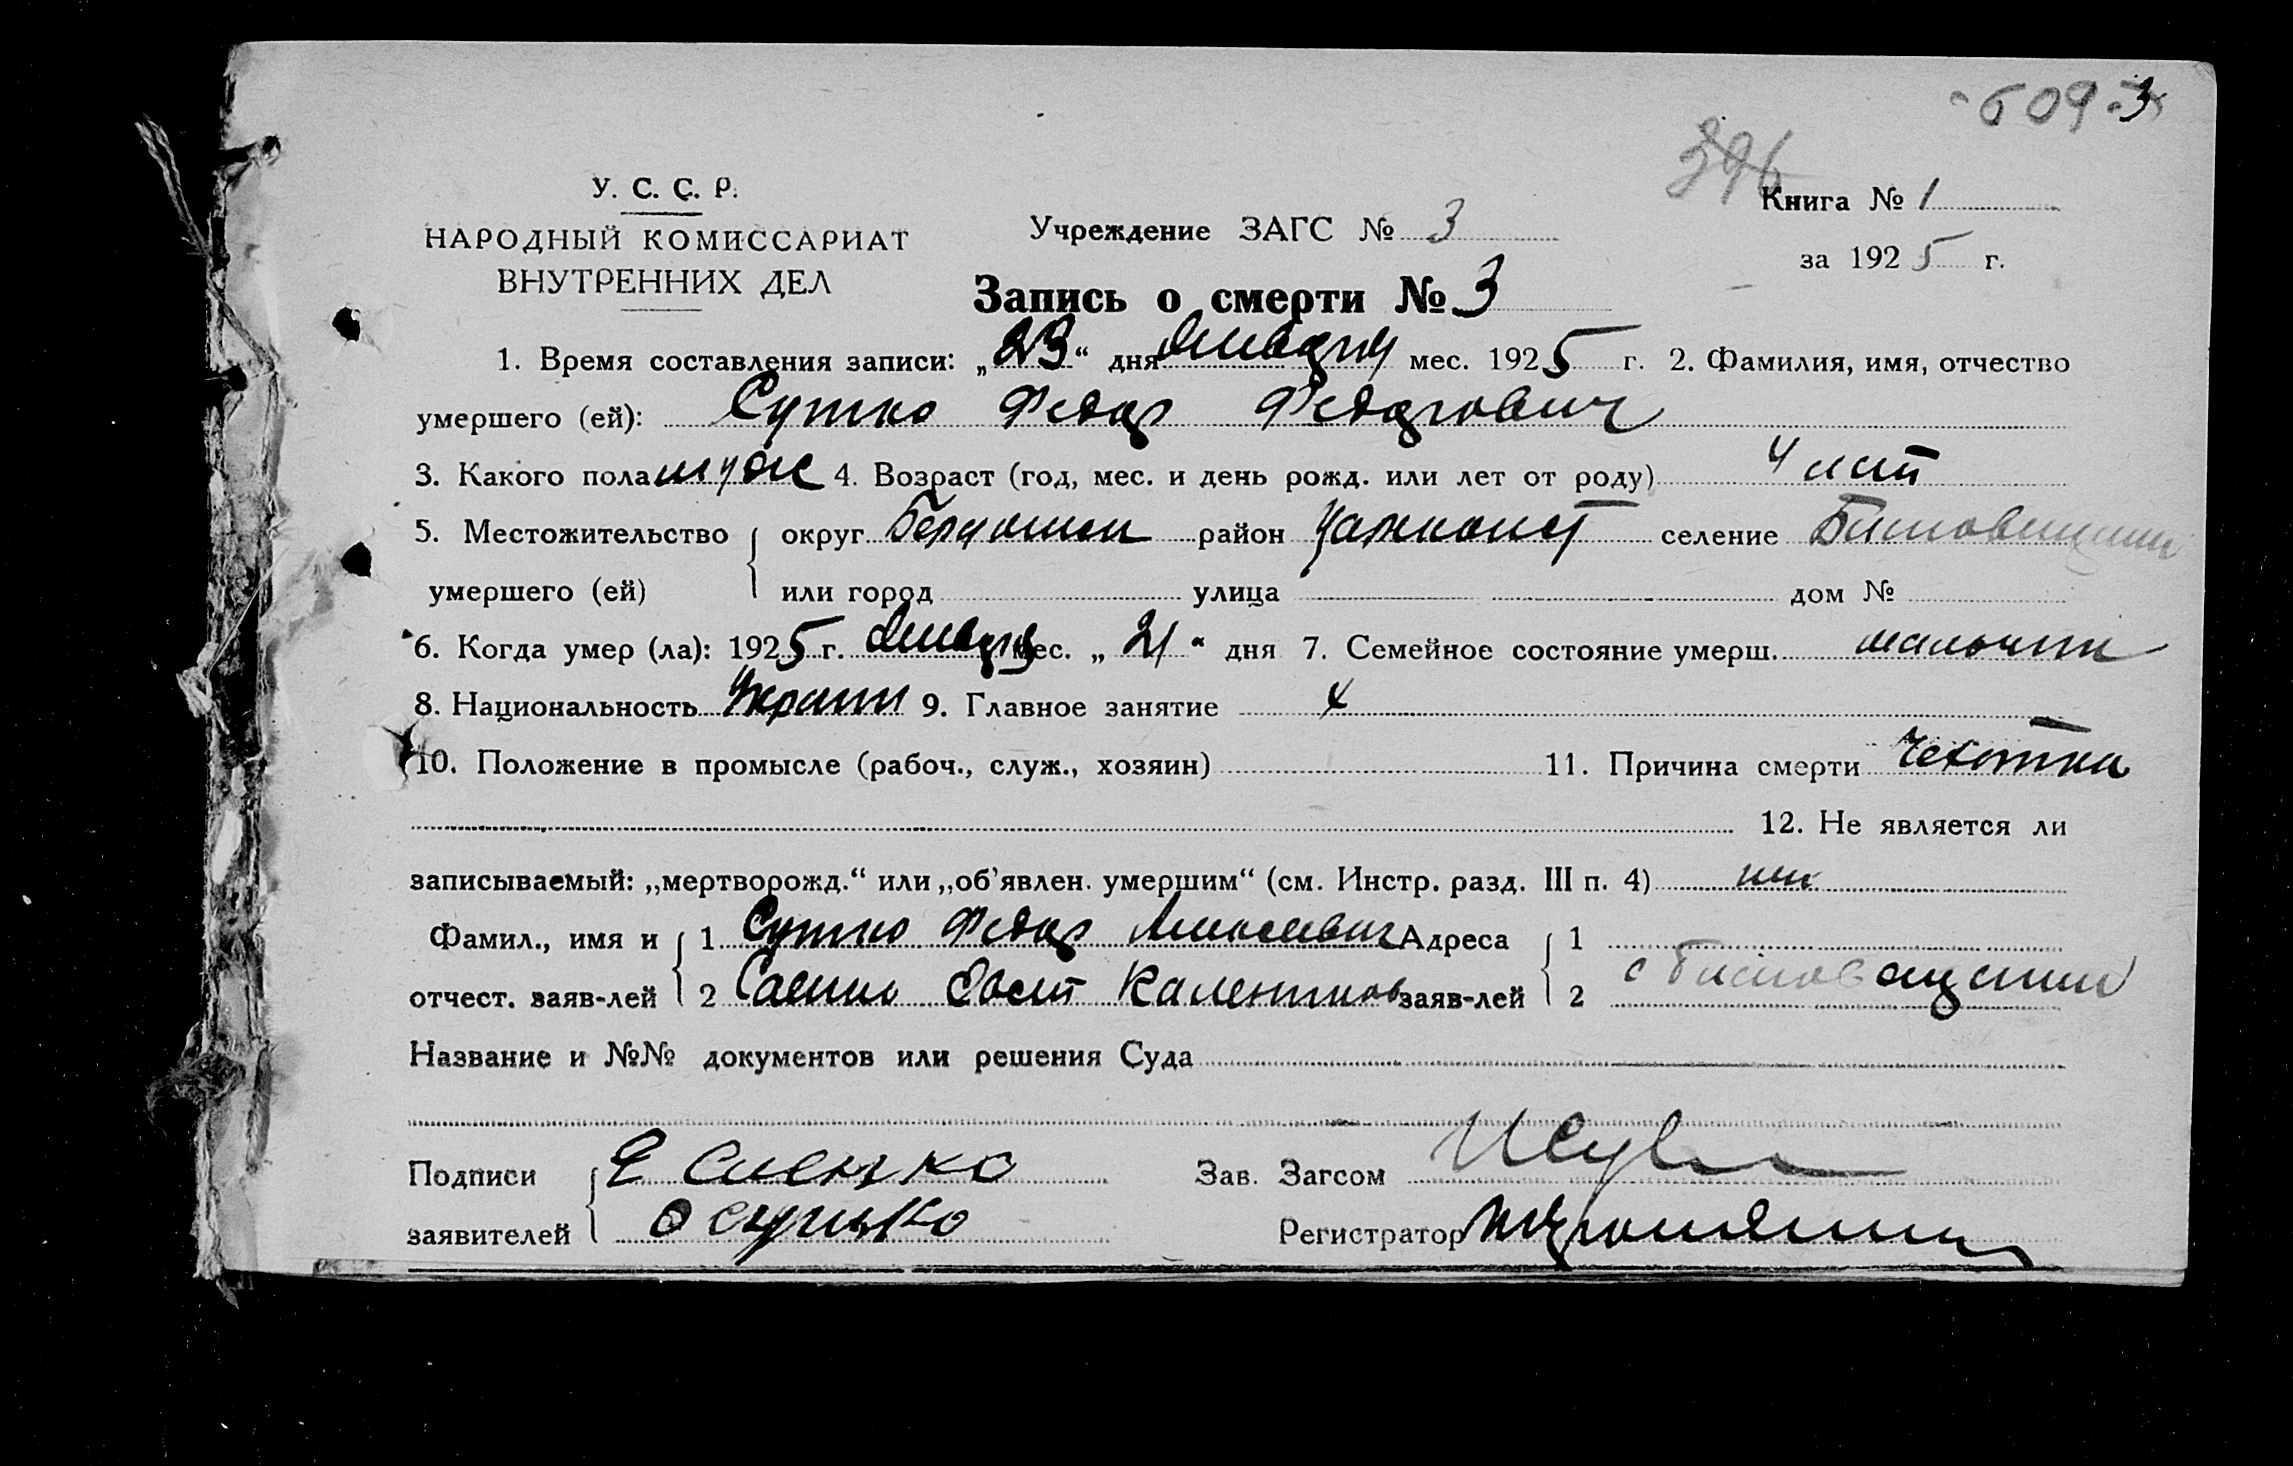 609
3
396
У. С. С. Р.
НАРОДНЫЙ КОМИССАРИАТ
ВНУТРЕННИХ ДЕЛ
Учреждение ЗАГС № 3
Книга № 1
за 1925 г.
Запись о смерти № 3
1. Время составления записи: „23“ дня Января мес. 1925 г. 2. Фамилия, имя, отчество
умершего (ей): Сутко Федор Федорович
3. Какого пола муж 4. Возраст (год, мес. и день рожд. или лет от роду) 4 лит
5. Местожительство умершего (ей) округ район селение
или город улица дом №
6. Когда умер (ла): 1925 г. Января мес. „21“ дня 7. Семейное состояние умерш.
8. Национальность 9. Главное занятие х
10. Положение в промысле (рабоч., служ., хозяин) 11. Причина смерти Чехотка
12. Не является ли
записываемый: „мертворожд.“ или „об'явлен. умершим“ (см. Инстр. разд. III п. 4)
Фамил., имя и отчест. заяв-лей 1 Сутко Федор Адреса заяв-лей 1
2 2
Название и №№ документов или решения Суда
Подписи заявителей Зав. Загсом
Регистратор